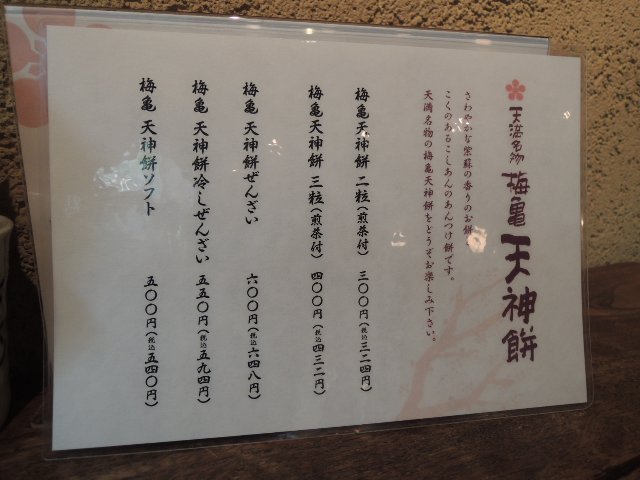 天満名物 梅亀 天神餅
さわやかな紫蘇の香りのお餅
こくのあるこしあんのあんつけ餅です。
天満名物の梅亀天神餅をどうぞお楽しみ下さい。
梅亀 天神餅 二粒(煎茶付) 三〇〇円(税込三二四円)
梅亀 天神餅 三粒(煎茶付) 四〇〇円(税込四三二円)
梅亀 天神餅ぜんざい 六〇〇円(税込六四八円)
梅亀 天神餅冷しぜんざい 五五〇円(税込五九四円)
梅亀 天神餅ソフト 五〇〇円(税込五四〇円)